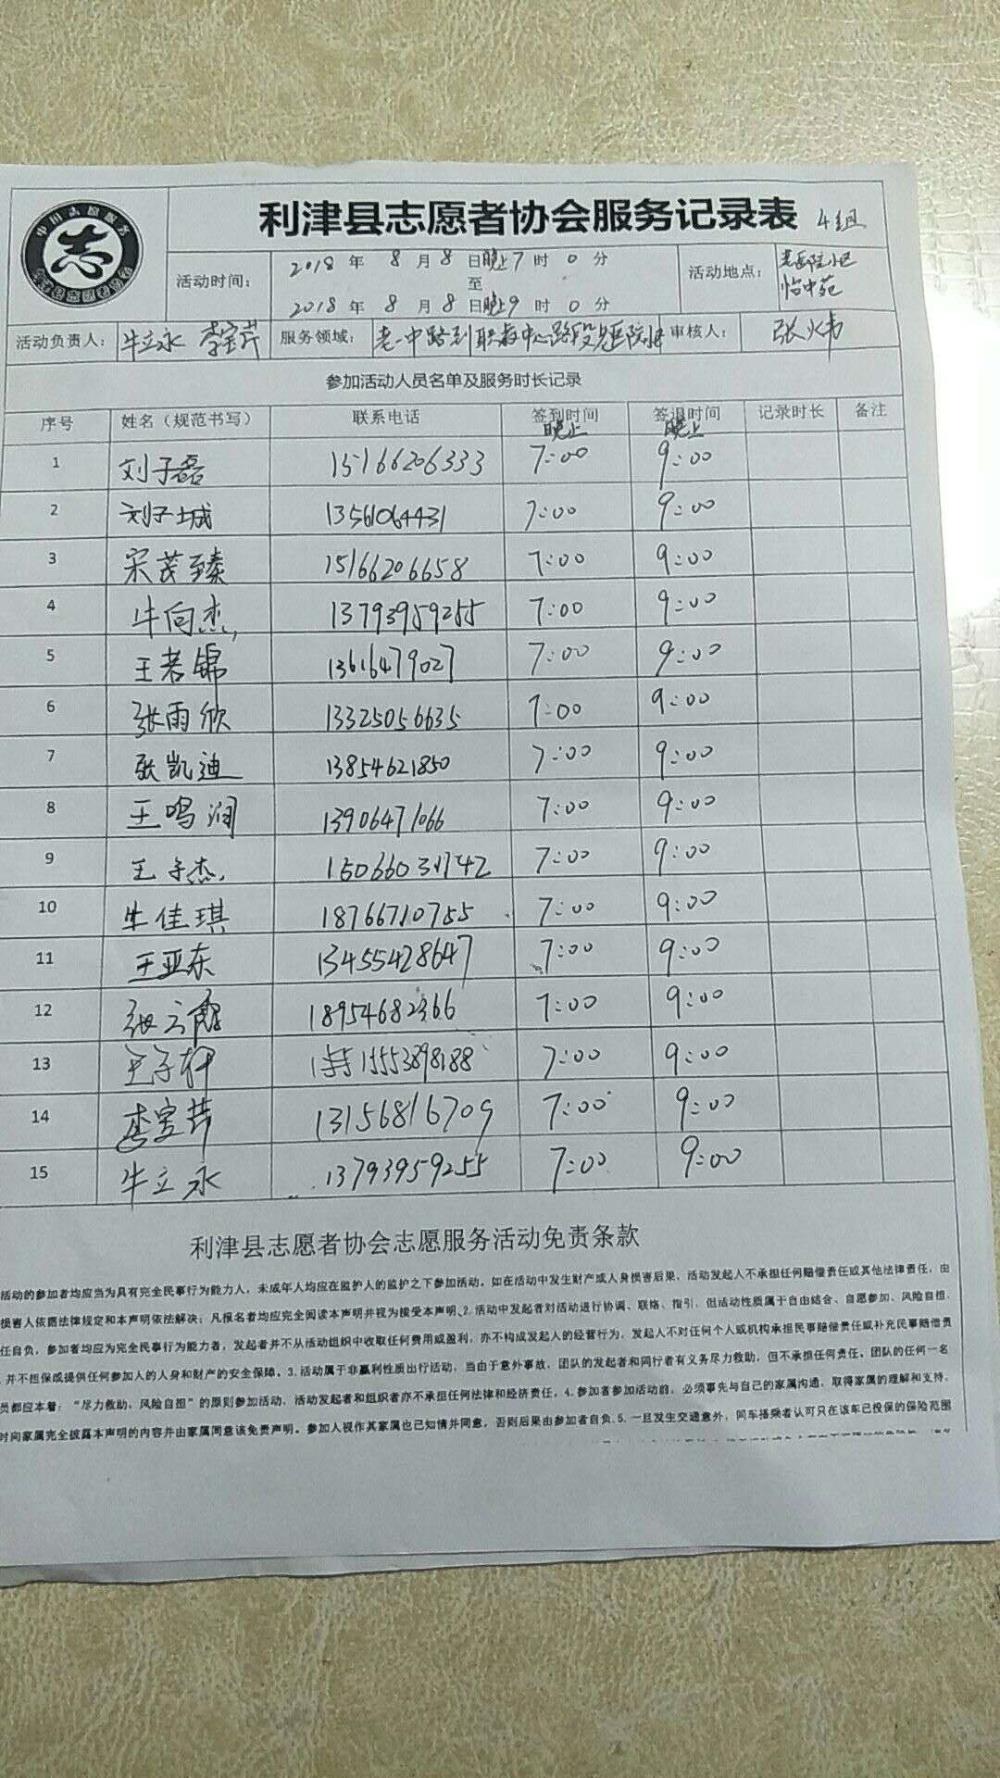 利津县志愿者协会服务记录表 4组
活动时间： 2018 年 8 月 8 日晚上7 时 0 分
至
2018 年 8 月 8 日晚上9 时 0 分
活动地点：
怡中苑
活动负责人： 牛立永 李宝芹 服务领域： 老一中路到职教中心路段 审核人： 张火韦
参加活动人员名单及服务时长记录
序号 姓名（规范书写） 联系电话 签到时间 签退时间 记录时长 备注
晚上 晚上
1 刘子磊 15166206333 7:00 9:00
2 刘子城 13561064431 7:00 9:00
3 宋茂臻 15166206658 7:00 9:00
4 牛向杰 13793959255 7:00 9:00
5 王若锦 13616479027 7:00 9:00
6 张雨欣 13325056635 7:00 9:00
7 张凯迪 13854621850 7:00 9:00
8 王鸣润 13906471066 7:00 9:00
9 王子杰 15066031742 7:00 9:00
10 牛佳琪 18766710755 7:00 9:00
11 王亚东 13455428647 7:00 9:00
12 张云 18954682366 7:00 9:00
13 王子轩 15553898188 7:00 9:00
14 李宝芹 13156816709 7:00 9:00
15 牛立永 13793959255 7:00 9:00
利津县志愿者协会志愿服务活动免责条款
活动的参加者均应当为具有完全民事行为能力人，未成年人均应在监护人的监护之下参加活动，如在活动中发生财产或人身损害后果，活动发起人不承担任何赔偿责任或其他法律责任，由
损害人依据法律规定和本声明依法解决；凡报名者均应完全阅读本声明并视为接受本声明。2.活动中发起者对活动进行协调、联络、指引，但活动性质属于自由结合、自愿参加、风险自担、
任自负，参加者均应为完全民事行为能力者，发起者并不从活动组织中收取任何费用或盈利，亦不构成发起人的经营行为，发起人不对任何个人或机构承担民事赔偿责任或补充民事赔偿责
，并不担保或提供任何参加人的人身和财产的安全保障。3.活动属于非赢利性质出行活动，当由于意外事故，团队的发起者和同行者有义务尽力救助，但不承担任何责任。团队的任何一名
员都应本着：“尽力救助，风险自担”的原则参加活动，活动发起者和组织者亦不承担任何法律和经济责任。4.参加者参加活动前，必须事先与自己的家属沟通，取得家属的理解和支持，
时向家属完全披露本声明的内容并由家属同意该免责声明。参加人视作其家属也已知情并同意，否则后果由参加者自负。5.一旦发生交通意外，同车搭乘者认可只在该车已投保的保险范围